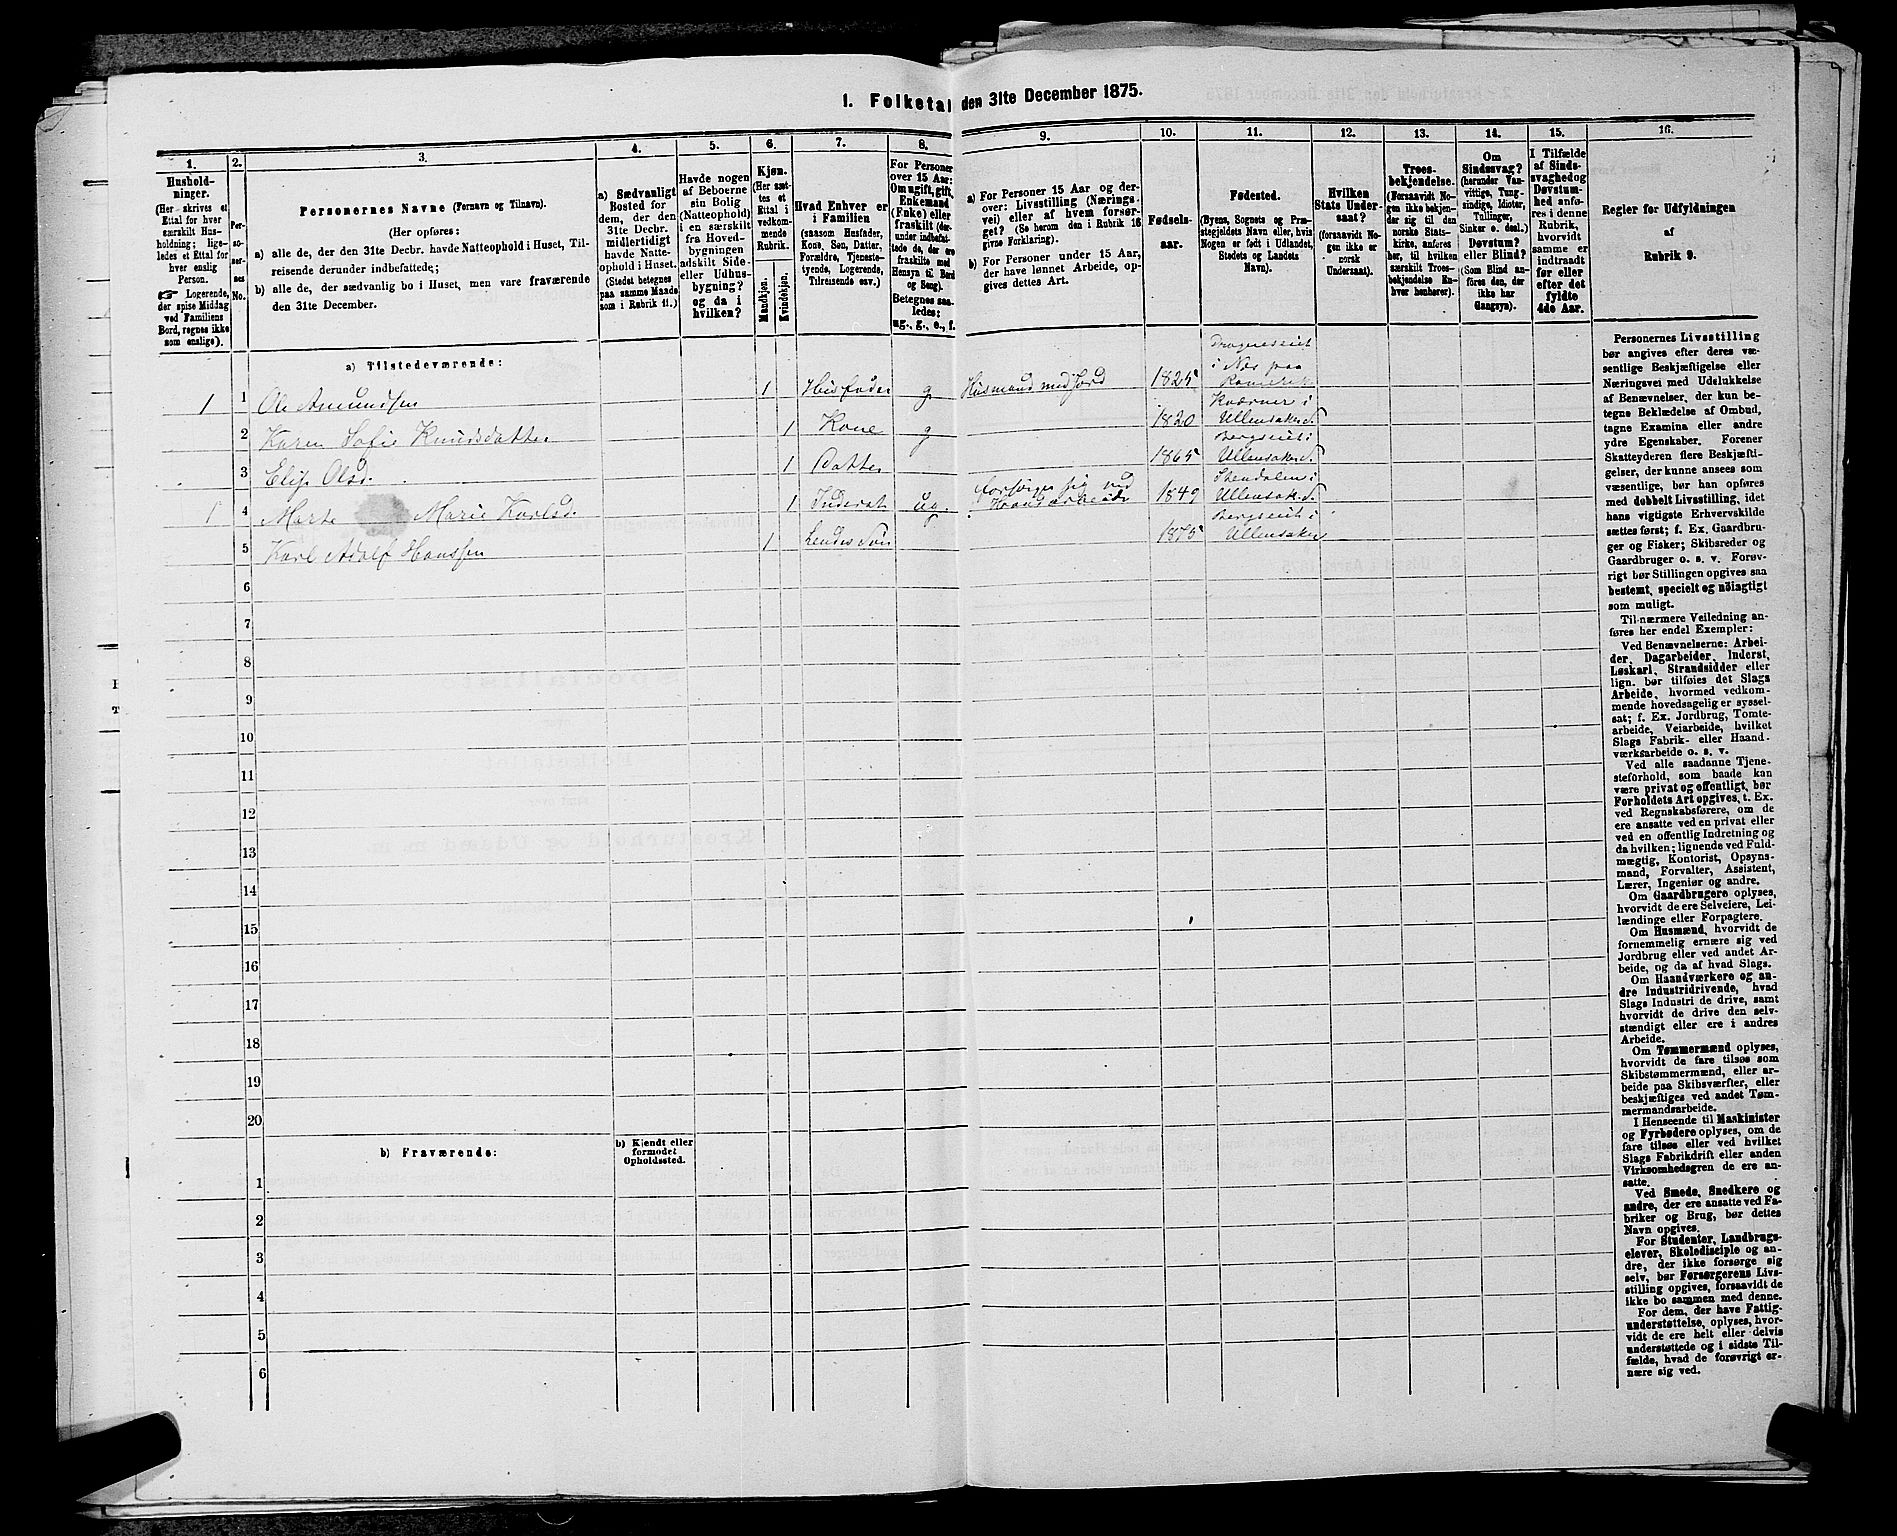 1. Folketal den 31te December 1875.
1.
Hushold-
ninger.
(Her skrives et
Ettal for hver
særskilt Hus-
holdning; lige-
ledes et Ettal
for hver
enslig
Person.
☞ Logerende,
der spise Middag
ved Familiens
Bord, regnes ikke
som enslige).
2.
Per-
so-
ner-
nes
No.
3.
Personernes Navne (Fornavn og Tilnavn).
(Her opføres:
a) alle de, der den 31te Decbr. havde Natteophold i Huset, Til-
reisende derunder indbefattede;
b) alle de, der sædvanlig bo i Huset, men vare fraværende
den 31te December.
4.
a) Sædvanligt
Bosted for
dem, der den
31te Decbr.
midlertidigt
havde Natte-
ophold i Huset.
(Stedet betegnes
paa samme Maade
som i Rubrik 11.)
5.
Havde nogen
af Beboerne
sin Bolig
(Natteophold)
i en særskilt
fra Hoved-
bygningen
adskilt Side-
eller Udhus-
bygning?
og da i
hvilken?
6.
Kjøn.
(Her sæt-
tes et
Ettal i
vedkom-
mende
Rubrik.
Mandkjøn.
Kvindekjøn.
7.
Hvad Enhver er
i Familien
(saasom Husfader,
Kone, Søn, Datter,
Forældre, Tjeneste-
tyende, Logerende,
Tilreisende osv.)
8.
For Personer
over 15 Aar:
Om ugift, gift,
Enkemand
(Enke) eller
fraskilt (der-
under indbefat-
tede de, der ere
fraskilte med
Hensyn til Bord
og Seng).
Betegnes saa-
ledes:
ug., g., e., f.
9.
a) For Personer 15 Aar og der-
over: Livsstilling (Nærings-
vei) eller af hvem forsør-
get? (Se herom den i Rubrik 16
givne Forklaring).
b) For Personer under 15 Aar,
der have lønnet Arbeide, op-
gives dettes Art.
10.
Fødsels-
aar.
11.
Fødested.
(Byens, Sognets og Præ-
stegjeldets Navn eller, hvis
Nogen er født i Udlandet,
Stedets og Landets
Navn).
12.
Hvilken
Stats Under-
saat?
(forsaavidt No-
gen ikke er
norsk
Undersaat).
13.
Troes-
bekjendelse.
(Forsaavidt No-
gen ikke bekjen-
der sig til den
norske Stats-
kirke, anføres
her, til hvilken
særskilt Troes-
bekjendelse En-
hver henhører).
14.
Om
Sindssvag?
(herunder Van-
vittige, Tung-
sindige, Idioter,
Tullinger,
Sinker o. desl.)
Døvstum?
eller Blind?
(Som Blind an-
føres den, der
ikke har
Gangsyn).
15.
I Tilfælde
af Sinds-
svaghed og
Døvstum-
hed anfø-
res i denne
Rubrik,
hvorvidt
samme er
indtraadt
før eller
efter det
fyldte
4de Aar.
16.
Regler for Udfyldningen
af
Rubrik 9.
a) Tilstedeværende:
1 1 Ole Amundsen 1 Husfader g Husmand med Jord 1825 Dragneseiet
i Næs paa
Romerik
2 Karen Sofie Knudsdatter 1 Kone g 1820 Kværner i
Ullensaker
3 Elise Olsd. 1 Datter 1865 Bergseiet i
Ullensaker
1 4 Marte Marie Karlsd. 1 Inderst ug. forsørger sig ved
Haandarbeide 1849 Stendalen i
Ullensaker
5 Karl Adolf Hanssen 1 hendes Søn 1875 Bergseiet i
Ullensaker
6
7
8
9
10
11
12
13
14
15
16
17
18
19
20
b) Fraværende:
b) Kjendt eller
formodet
Opholdssted.
1
2
3
4
5
6
Personernes Livsstilling
bør angives efter deres væ-
sentlige Beskjæftigelse eller
Næringsvei med Udelukkelse
af Benævnelser, der kun be-
tegne Beklædelse af Ombud,
tagne Examina eller andre
ydre Egenskaber. Forener
Skatteyderen flere Beskjæfti-
gelser, der kunne ansees som
væsentlige, bør han opføres
med dobbelt Livsstilling, idet
hans vigtigste Erhvervskilde
sættes først; f. Ex. Gaardbru-
ger og Fisker; Skibsreder og
Gaardbruger o. s. v. Forøv-
rigt bør Stillingen opgives saa
bestemt, specielt og nöiagtigt
som muligt.
Til nærmere Veiledning an-
føres her endel Exempler:
Ved Benævnelserne: Arbei-
der, Dagarbeider, Inderst,
Løskarl, Strandsidder eller
lign. bør tilføies det Slags
Arbeide, hvormed vedkom-
mende hovedsagelig er syssel-
sat; f. Ex. Jordbrug, Tomte-
arbeide, Veiarbeide, hvilket
Slags Fabrik- eller Haand-
værksarbeide o. s. v.
Ved alle saadanne Tjene-
steforhold, som baade kan
være privat og offentligt, bør
Forholdets Art opgives, t. Ex.
ved Regnskabsførere, om de
ere ansatte ved en privat eller
ved en offentlig Indretning og
da hvilken; lignende ved Fuld-
mægtig, Kontorist, Opsyns-
mand, Forvalter, Assistent,
Lærer, Ingeniør og andre.
Om Gaardbrugere oplyses,
hvorvidt de ere Selveiere, Lei-
lændinge eller Forpagtere.
Om Husmænd, hvorvidt de
fornemmelig ernære sig ved
Jordbrug eller ved andet Ar-
beide, og da af hvad Slags.
Om Haandværkere og an-
dre Industridrivende, hvad
Slags Industri de drive, samt
hvorvidt de drive den selv-
stændigt eller ere i andres
Arbeide.
Om Tømmermænd oplyses,
hvorvidt de fare tilsøs som
Skibstømmermænd, eller ar-
beide paa Skibsværfter, eller
beskjæftiges ved andet Tøm-
mermandsarbeide.
I Henseende til Maskinister
og Fyrbødere oplyses, om de
fare tilsøs eller ved hvilket
Slags Fabrikdrift eller anden
Virksomhedsgren de ere an-
satte.
Ved Smede, Snedkere og
andre, der ere ansatte ved Fa-
briker og Brug, bør dettes
Navn opgives.
For Studenter, Landbrugs-
elever, Skoledisciple og an-
dre, der ikke forsørge sig
selv, bør Forsørgerens Livs-
stilling opgives, forsaavidt de
ikke bo sammen med denne.
For dem, der have Fattig-
understøttelse, oplyses, hvor-
vidt de ere helt eller delvis
understøttede og i sidste Til-
fælde, hvad de forøvrigt er-
nære sig ved.